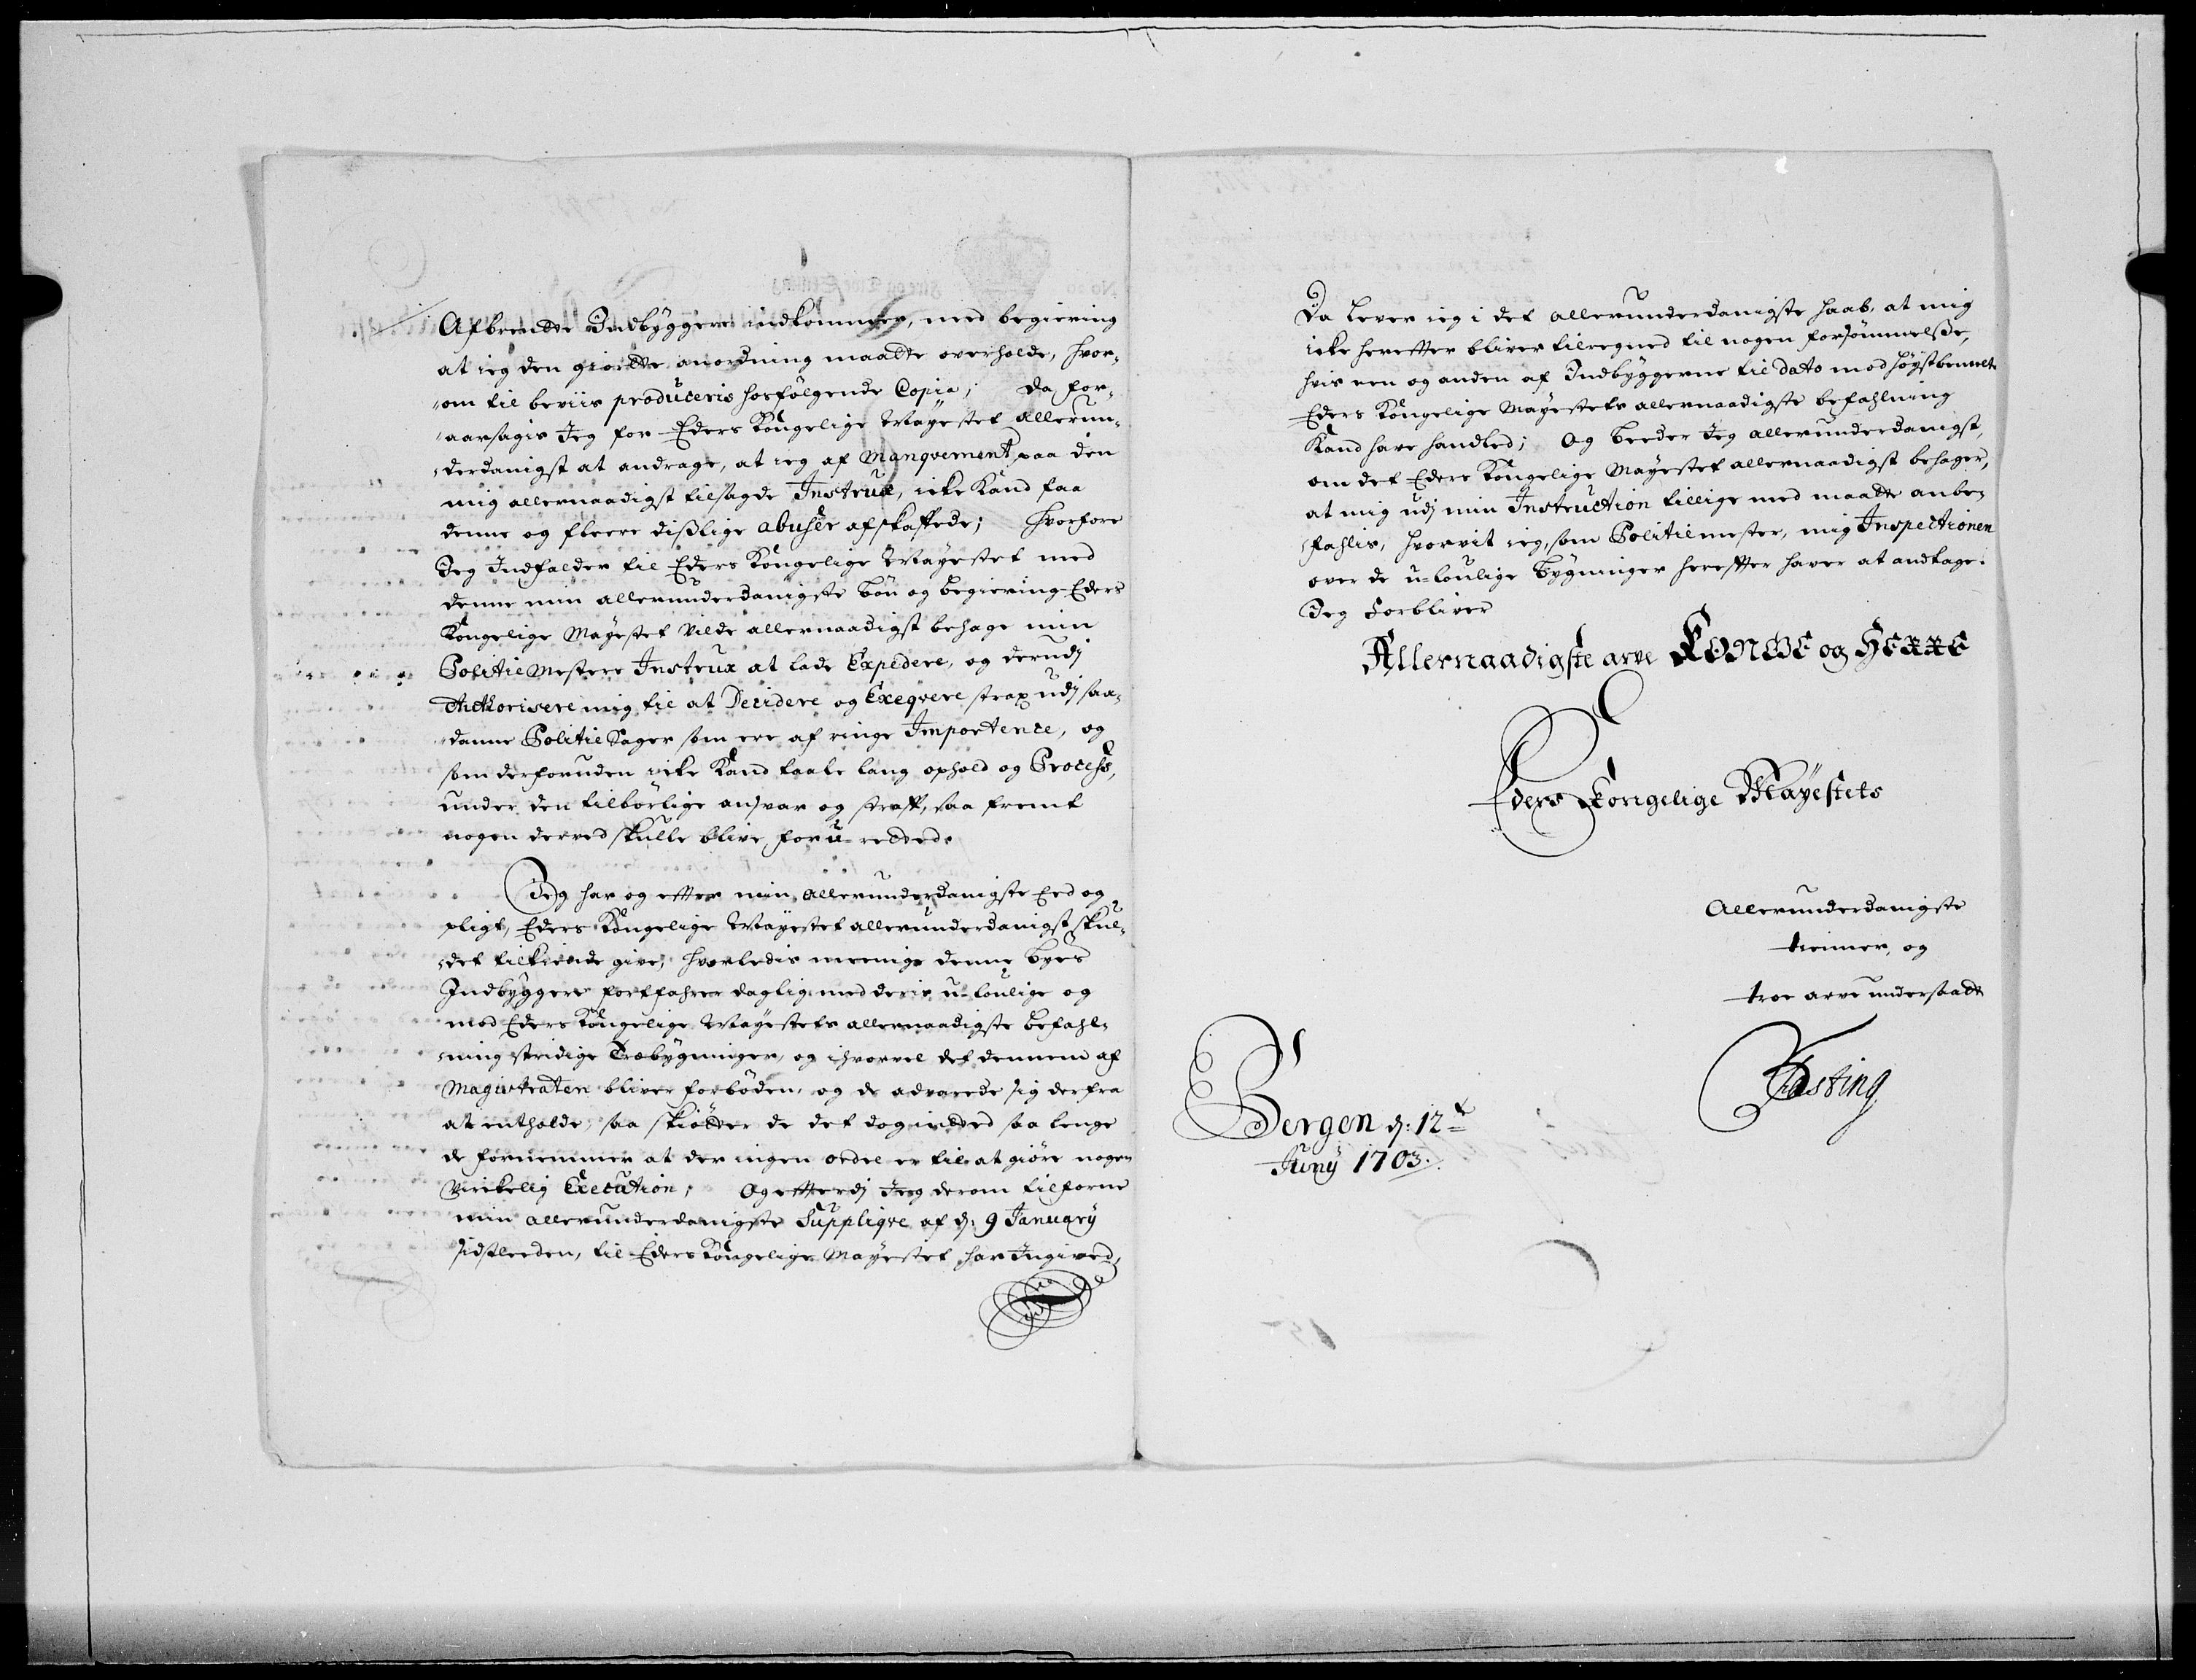 Afbrendte Indbyggere indkommer, med begiering
at ieg den giordte anordning maatte overholde, hvor¬
om til beviis produceris hosfölgende Copia; Da for¬
aarsagis Jeg for Eders Kongelige Mayestet allerun¬
derdanigst at andrage, at ieg af Manqvement paa den
mig allernaadigst tilsagde Instrux, icke Kand faa
denne og fleere dißlige abuser afskaffede; Hvorfore
Jeg Indfalder til Eders Kongelige Mayestet med
denne min allerunderdanigste bön og begiering Eders
Kongelige Mayestet vilde allernaadigst behage min
Politiemesters Instrux at lade Expedere, og derudj
Authorisere mig til at Decidere og Exeqvere strax udj saa¬
danne Politie Sager som ere af ringe Importence, og
som derforuden icke Kand taale lang ophold og Process,
under den tilbörlige ansvar og straff, saa fremt
nogen derved skulle blive for u-retted.
Jeg har og efter min allerunderdanigste Eed og
pligt, Eders Kongelige Mayestet allerunderdanigst skul¬
det tilkiende give, hvorledis meenige denne byes
Indbyggere fortfahrer daglig med deris u-loulige og
mod Eders Kongelige Mayestets allernaadigste befahl¬
ning stridige Træbygninger, og ihvorvel det dennem af
Magistraten bliver forböden, og de advarede sig derfra
at entholde, saa skiötter de det dog intted saa lenge
de fornemmer at der ingen ordre er til at giöre nogen
Virckelig Execution; Og efterdj Jeg derom tilforne
min allerunderdanigste Suppliqve af d: 9 January
sidstleeden, til Eders Kongelige Mayestet har Ingived,
Da lever ieg i det allerunderdanigste haab, at mig
icke herefter bliver tilregned til nogen forsömmelße,
hvis een og anden af Indbyggerne til dato mod höystbemelte
Eders Kongelige Mayestets allernaadigste befahlning
Kand have handled; Og beeder Jeg allerunderdanigst,
om det Eders Kongelige Mayestet allernaadigst behager,
at mig udj min Instruction tillige med maatte anbe¬
fahlis, hvorvit ieg, som Politiemester, mig Inspectionen
over de u-loulige bygninger herefter haver at andtage.
Jeg Forbliver
Allernaadigste arve KONGE og HERRE
Eders Kongelige Mayestets
Allerunderdanigste
tienner, og
troe arve undersaatt
Fasting
Bergen d: 12t
Juny 1703.